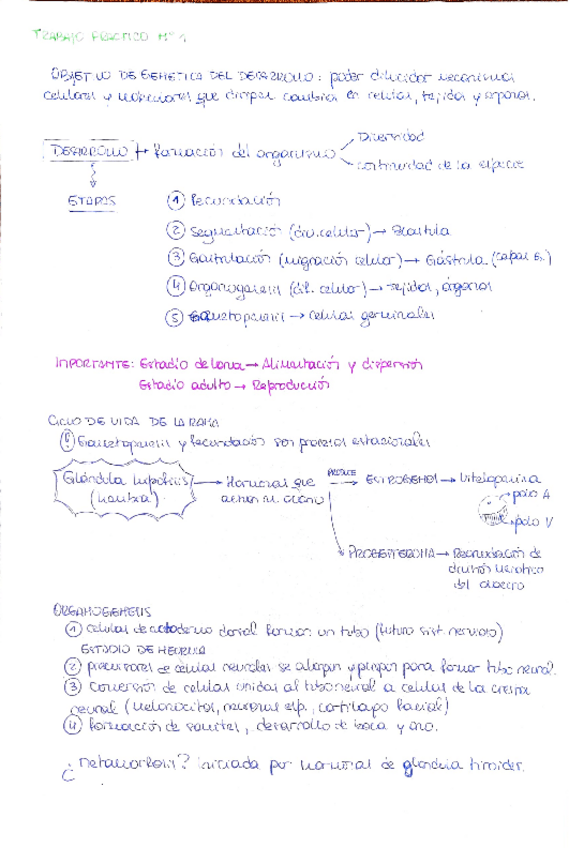 TRABAJO PRACTICO Nº 1
OBJETIVO DE GENETICA DEL DESARROLLO: poder dilucidar mecanismos
celulares y moleculares que dirigen cambios en celulas, tejidos y organos.
DESARROLLO → formación del organismo
Diversidad
continuidad de la especie
ETAPAS
1 Fecundación
2 Segmentación (div. celular) → Blastula
3 Gastrulación (migración celular) → Gástrula (capas G.)
4 Organogenesis (dif. celular) → tejidos, órganos
5 Gametogenesis → celulas germinales
IMPORTANTE: Estadio de larva → Alimentación y dispersión
Estadio adulto → Reproducción
CICLO DE VIDA DE LA RANA
Gametogenesis y fecundación son procesos estacionales
Glándula hipófisis → Hormonas que PRODUCE → ESTROGENOS → Vitelogenina
(hembra) actuan en ovario
polo A
polo V
PROGESTERONA → Reanudación de
división meiotica
del ovocito
ORGANOGENESIS
1 celulas de ectodermo dorsal forman un tubo (futuro sist. nervioso)
ESTADIO DE NEURULA
2 precursores de celulas neurales se alargan y pliegan para formar tubo neural.
3 conversión de celulas unidas al tubo neural a celulas de la cresta
neural (melanocitos, neuronas esp., cartilago facial)
4 formación de somitas, desarrollo de boca y ano.
¿metamorfosis? iniciada por hormonas de glandula tiroides.